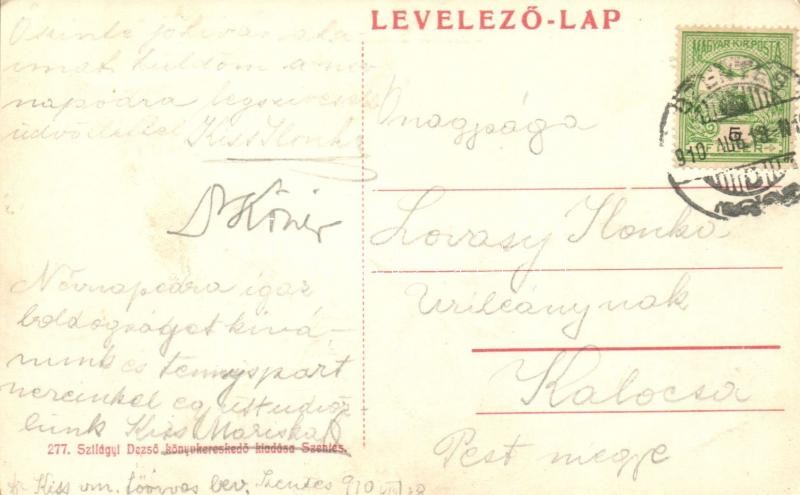 LEVELEZŐ-LAP
Őszinte jókívánata
imat küldöm
napodra legszivesebb
üdvözlettel Kiss Ilonka
Kövér
Névnapodra igaz
boldogságot kivá-
nunk és tennyspart
nereinkel együtt üdvöz
lünk Kiss Mariska
277. Szilágyi Dezső könyvkereskedő kiadása Szentes.
Kiss vm. bev. Szentes 910
MAGYAR KIR. POSTA
SZENTES
910 AUG
5
FILLÉR
Őnagysága
Lovasy Ilonka
Urileánynak
Kalocsa
Pest megye